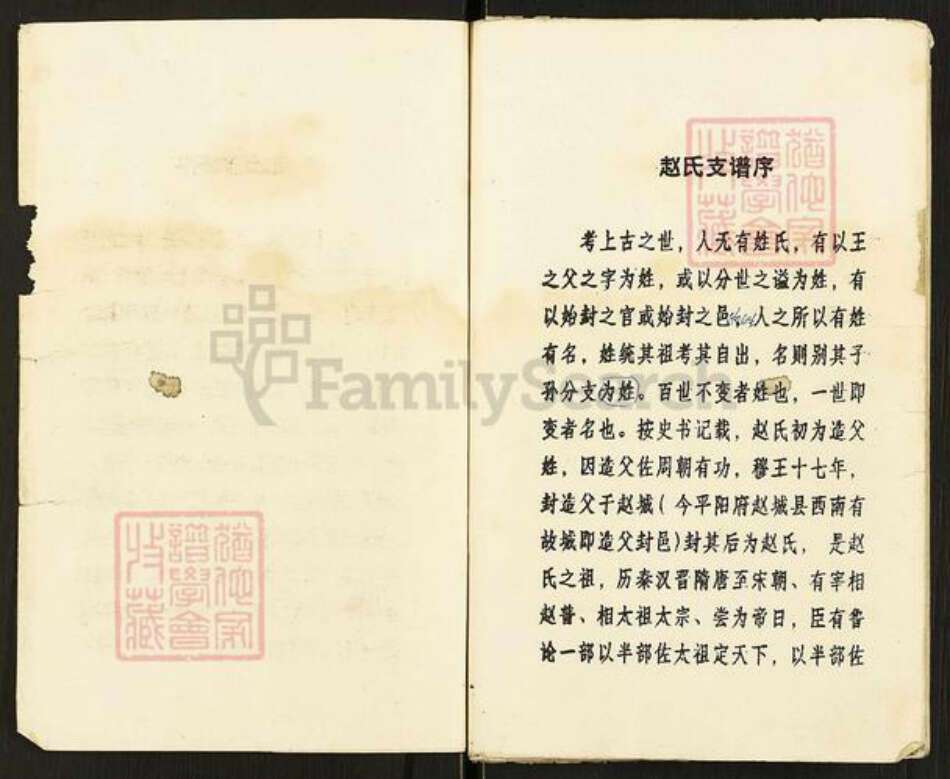 赵氏支谱序
考上古之世，人无有姓氏，有以王
之父之字为姓，或以分世之谥为姓，有
以始封之官或始封之邑 人之所以有姓
有名，姓统其祖考其自出，名则别其子
孙分支为姓。百世不变者姓也，一世即
变者名也。按史书记载，赵氏初为造父
姓，因造父佐周朝有功，穆王十七年，
封造父于赵城(今平阳府赵城县西南有
故城即造父封邑)封其后为赵氏，是赵
氏之祖，历秦汉晋隋唐至宋朝、有宰相
赵普、相太祖太宗、尝为帝日，臣有鲁
论一部以半部佐太祖定天下，以半部佐
FamilySearch
猶他家
譜學會
收藏
猶他家
譜學會
收藏